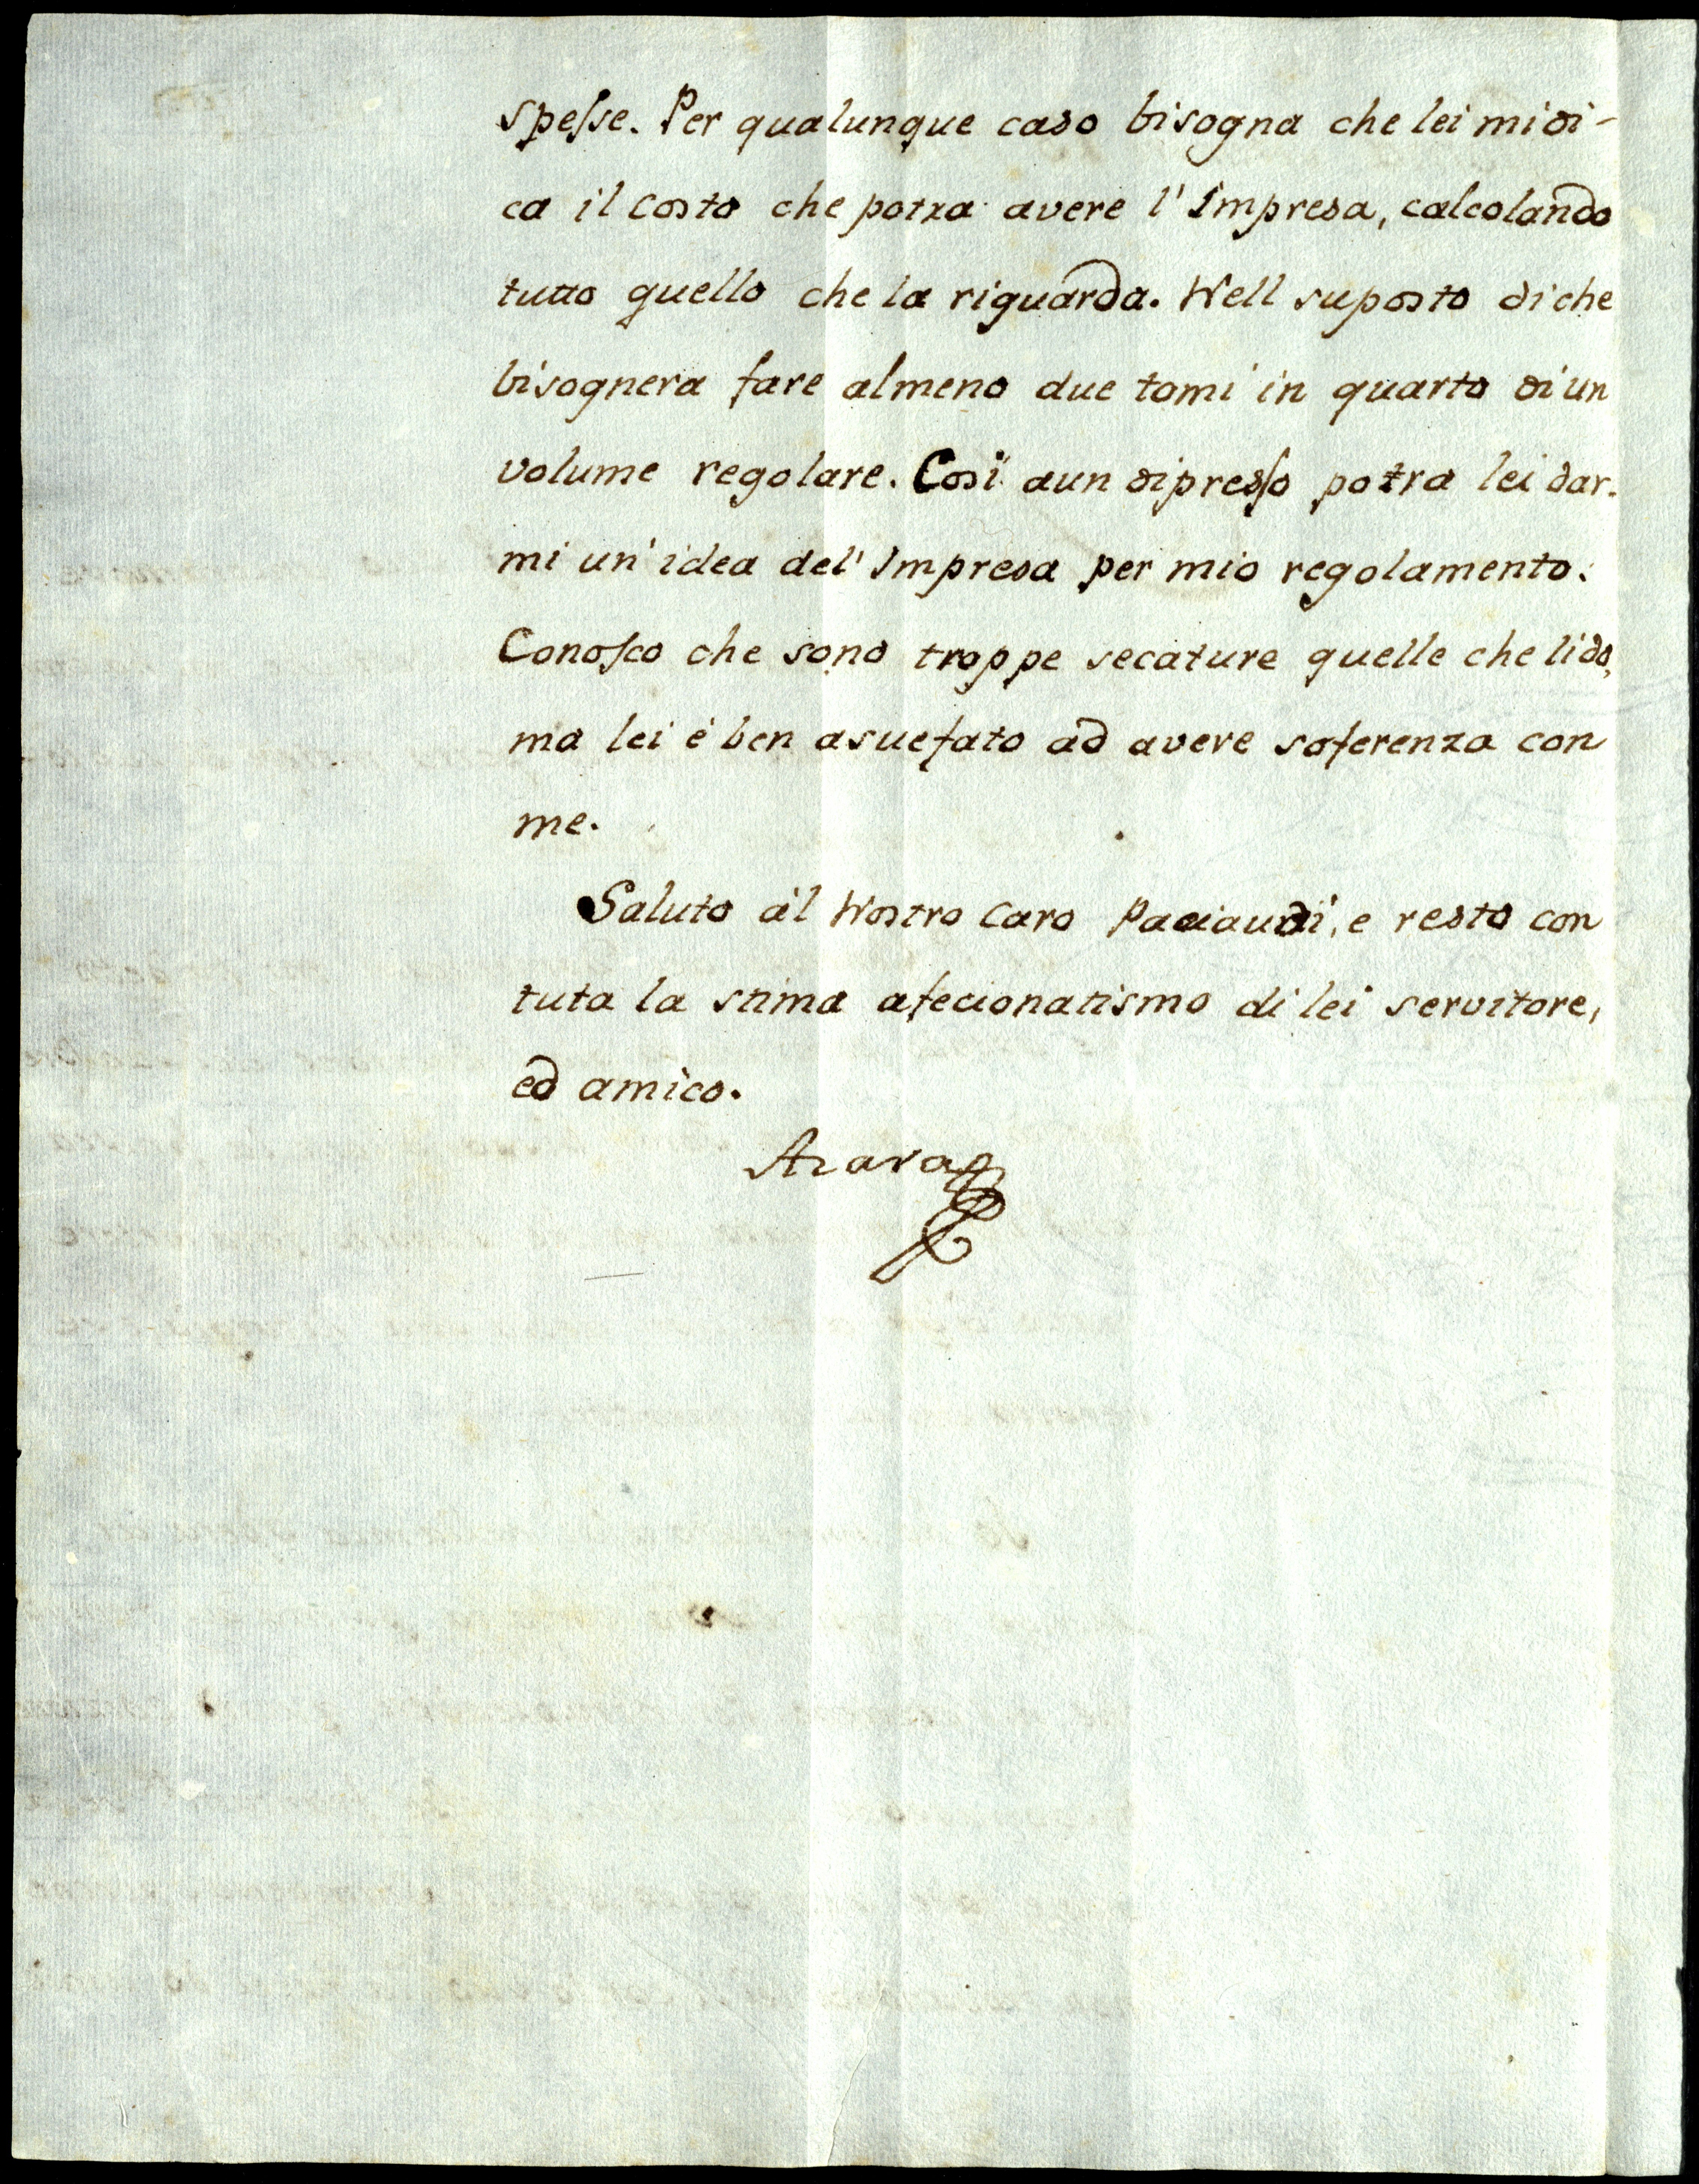 spesse. Per qualunque caso bisogna che lei mi di-
ca il costo che potra avere l'Impresa, calcolando
tutto quello che la riguarda. Nell suposto di che
bisognera fare almeno due tomi in quarto di un
volume regolare. Così aun dipresso potra lei dar-
mi un'idea del'Impresa per mio regolamento.
Conosco che sono troppe secature quelle che li do,
ma lei é ben asuefato ad avere soferenza con
me.
Saluto a'l Nostro Caro Paciaudi, e resto con
tuta la stima afecionatismo di lei servitore,
ed amico.
Azara